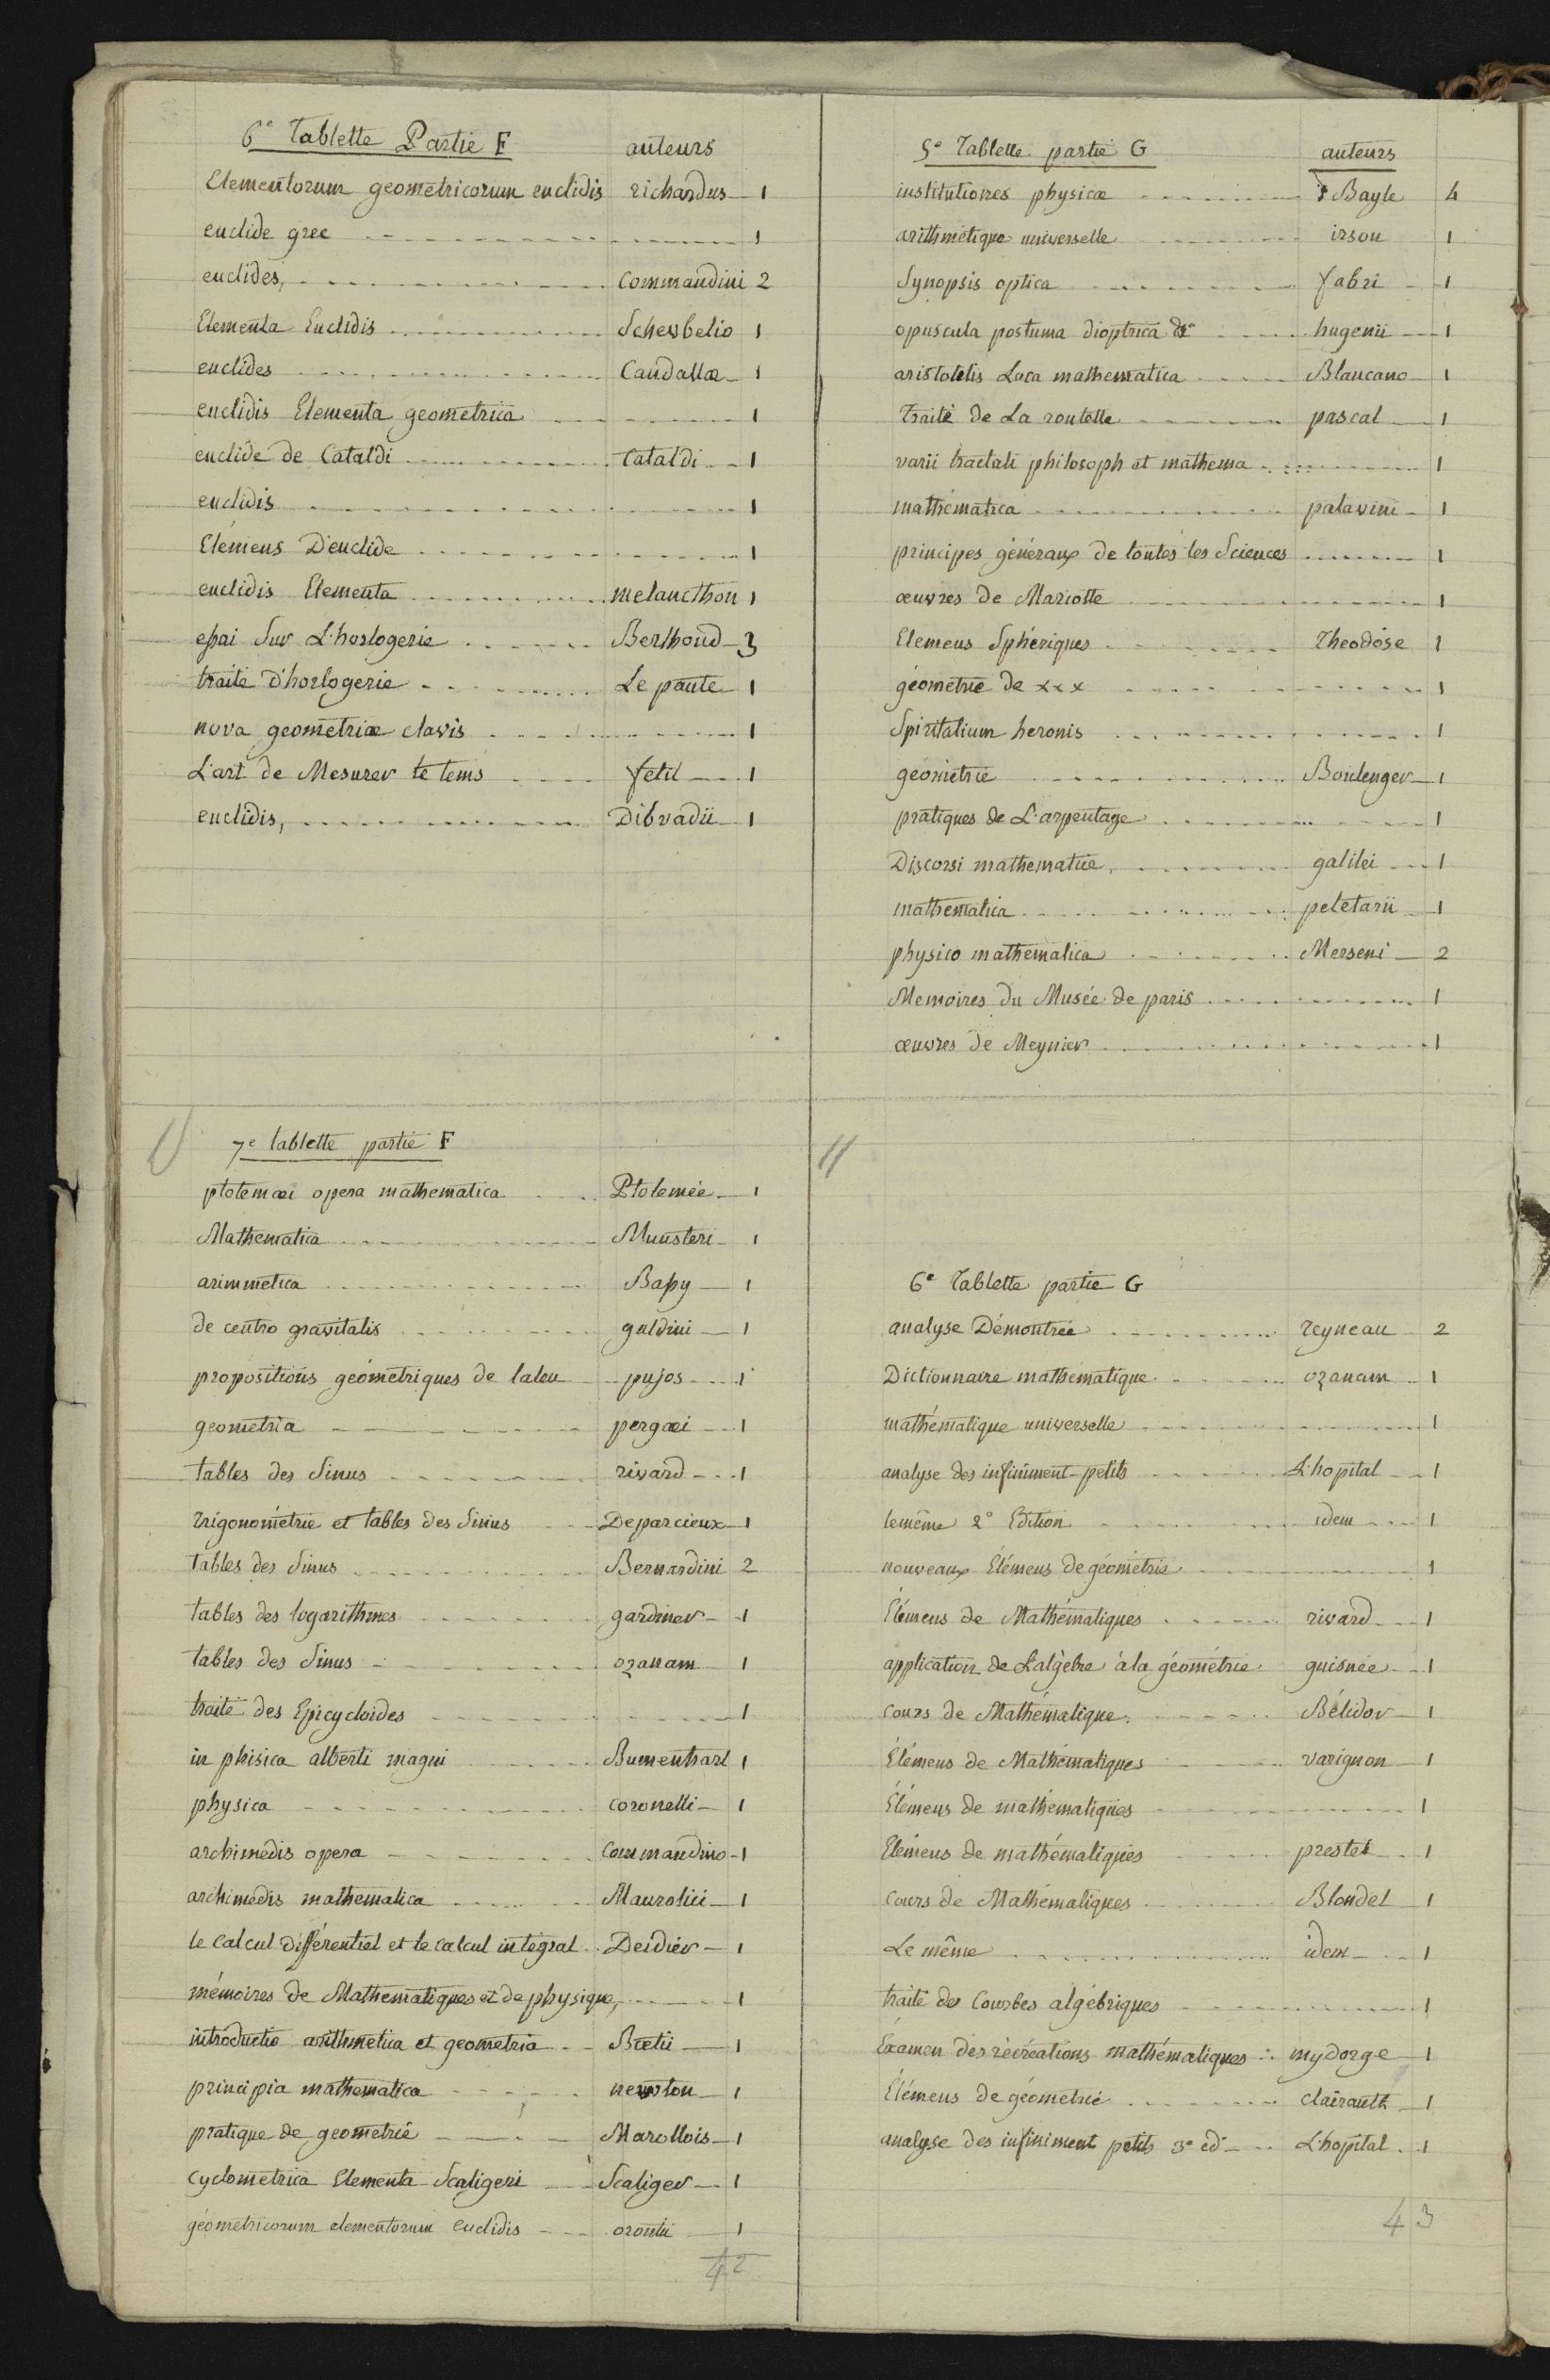 6e Tablette Partie F auteurs
Elementorum geometricorum euclidis richardus 1
euclide grec 1
euclides, Commandini 2
Elementa Euclidis Scheubelio 1
euclides Candallæ 1
euclidis Elementa geometrica 1
euclide de Cataldi Cataldi 1
euclidis 1
Elémens D'euclide 1
euclidis Elementa melancthon 1
essai Sur L'horlogerie Berthoud 3
traité D'horlogerie Le paute 1
nova geometriæ clavis 1
L'art de Mesurer le tems fetil 1
euclidis, Dibvadii 1
7e tablette partie F
ptolemæi opera mathematica Ptolemée 1
Mathematica Munsteri 1
arimmetica Bassy 1
de centro gravitatis guldini 1
propositions géometriques de laleu pujos 1
geometria pergæi 1
tables des Sinus rivard 1
trigonométrie et tables des Sinus Deparcieux 1
tables des Sinus Bernardini 2
tables des logarithmes gardiner 1
tables des Sinus ozanam 1
traité des Epicycloides 1
in phisica alberti magni 1
physica coronelli 1
archimedis opera Commandino 1
archimedis mathematica Maurolici 1
le calcul différentiel et le calcul integral Deidier 1
mémoires de Mathematiques et de physique, 1
introductio arithmetica et geometria Bœtii 1
principia mathematica newton 1
pratique de geometrié Marollois 1
Cyclometrica Elementa Scaligeri Scaliger 1
géometricorum elementorum Euclidis orontii 1
42
5e Tablette partie G auteurs
institutiones physicæ Bayle 4
arithmetique universelle irson 1
Synopsis optica fabri 1
opuscula postuma dioptrica &c hugenii 1
aristotelis Loca mathematica Blancano 1
traité de La roulette pascal 1
varii tractati philosoph et mathema 1
mathématica patavini 1
principes généraux de toutes les Sciences 1
œuvres de Mariotte 1
Elemens Sphériques Theodose 1
géométrie de xxx 1
Spiritalium heronis 1
géométrie Boulenger 1
pratiques de L'arpentage 1
Discorsi mathematice, galilei 1
mathematica peletarii 1
physico mathematica Merseni 2
Memoires du Musée de paris 1
œuvres de Meynier 1
11
6e Tablette partie G
analyse Démontrée reyneau 2
Dictionnaire mathématique ozanam 1
mathématique universelle 1
analyse des infiniment petits L'hopital 1
lemême 2e Edition idem 1
nouveaux Élémens de géométrie 1
Élémens de Mathématiques rivard 1
application de L'algèbre à la géométrie guisnée 1
cours de Mathématique Bélidor 1
Élémens de Mathématiques varignon 1
Élémens de mathématiques 1
Elémens de mathématiques prestet 1
Cours de Mathématiques Blondel 1
Le même idem 1
traité des Courbes algébriques 1
Examen des récréations mathématiques mydorge 1
Élémens de géometrié clairault 1
analyse des infiniment petits 3e ed L'hopital 1
43